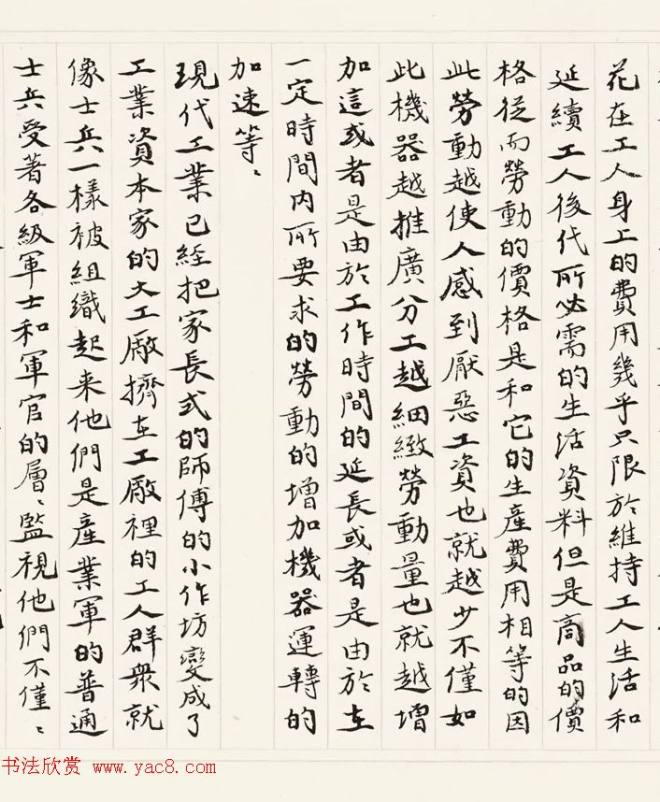 花在工人身上的費用幾乎只限於維持工人生活和
延續工人後代所必需的生活資料但是商品的價
格從而勞動的價格是和它的生產費用相等的因
此勞動越使人感到厭惡工資也就越少不僅如
此機器越推廣分工越細緻勞動量也就越增
加這或者是由於工作時間的延長或者是由於在
一定時間內所要求的勞動的增加機器運轉的
加速等、
現代工業已經把家長式的師傅的小作坊變成了
工業資本家的大工廠擠在工廠裡的工人群衆就
像士兵一樣被組織起来他們是產業軍的普通
士兵受著各級軍士和軍官的層、監視他們不僅、
书法欣赏 www.yac8.com